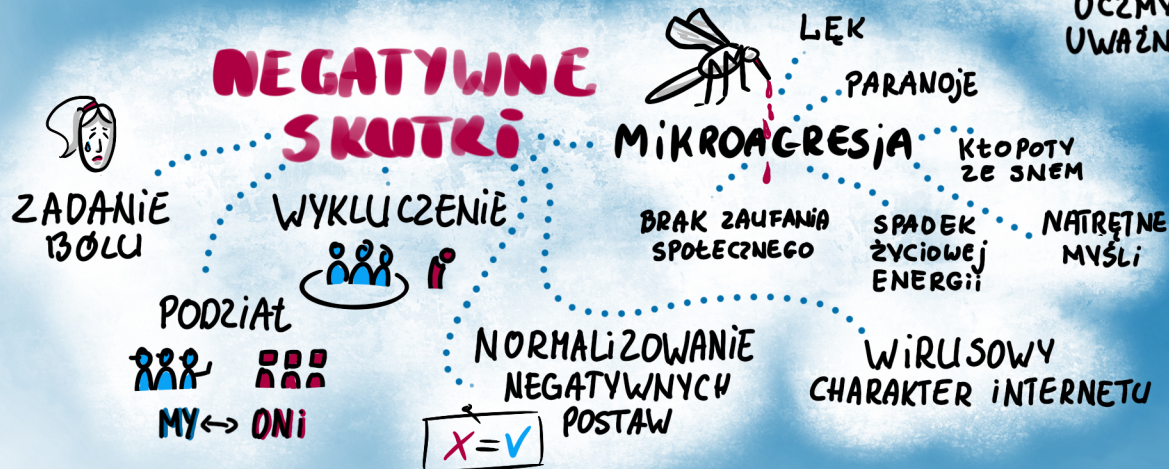 NEGATYWNE
SKUTKI
ZADANIE
BÓLU
WYKLUCZENIE
PODZIAŁ
MY ↔ ONI
NORMALIZOWANIE
NEGATYWNYCH
POSTAW
X = V
MIKROAGRESJA
LĘK
PARANOJE
KŁOPOTY
ZE SNEM
NATRĘTNE
MYŚLI
SPADEK
ŻYCIOWEJ
ENERGII
BRAK ZAUFANIA
SPOŁECZNEGO
WIRUSOWY
CHARAKTER INTERNETU